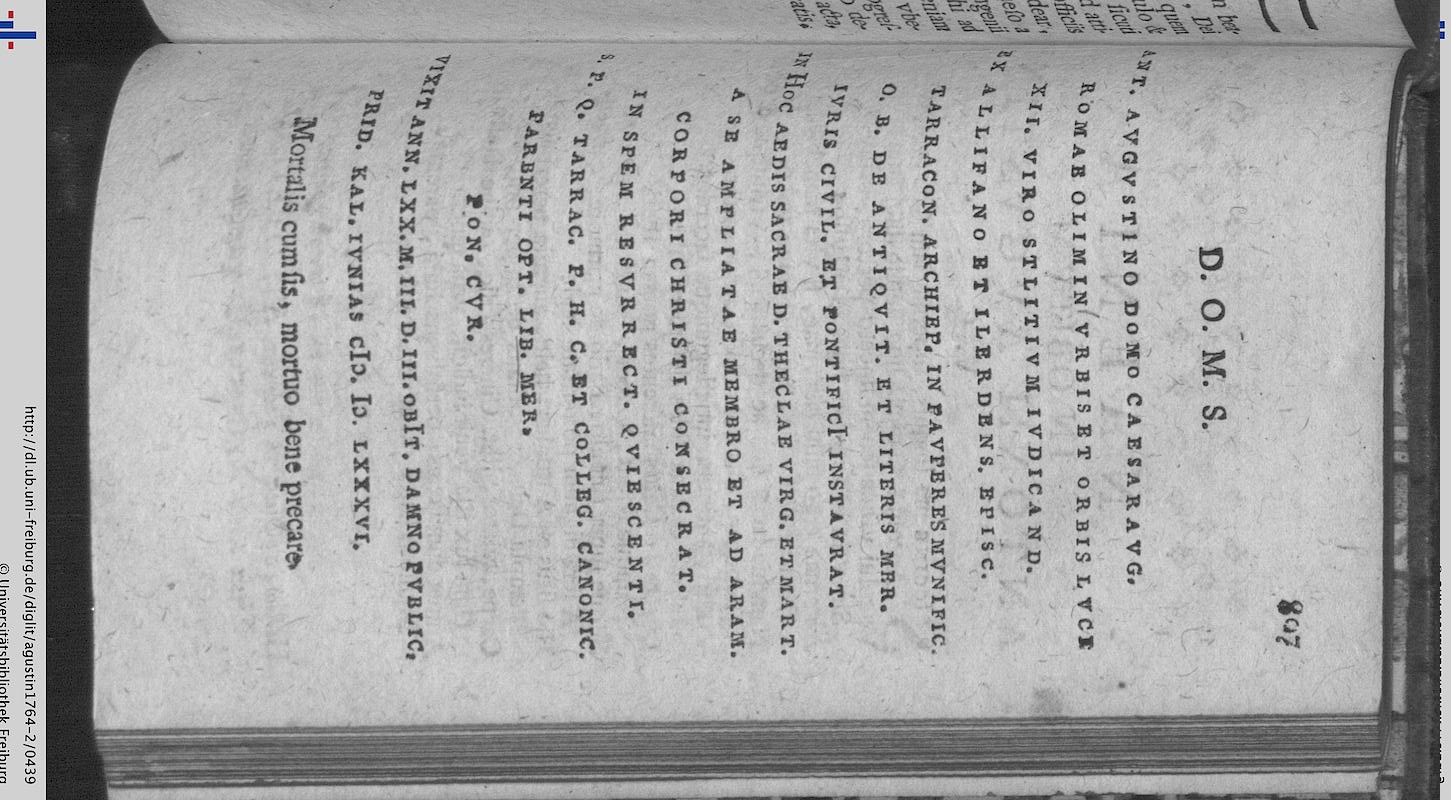 807
D. O. M. S.
ANT. AVGVSTINO DOMO CAESARAVG.
ROMAE OLIM IN VRBIS ET ORBIS LVCE
XII. VIRO STLITIVM IVDICAND.
EX ALLIFANO ET ILERDENS. EPISC.
TARRACON. ARCHIEP. IN PAVPERES MVNIFIC.
O. B. DE ANTIQVIT. ET LITERIS MER.
IVRIS CIVIL. ET PONTIFICI INSTAVRAT.
IN HOC AEDIS SACRAE D. THECLAE VIRG. ET MART.
A SE AMPLIATAE MEMBRO ET AD ARAM.
CORPORI CHRISTI CONSECRAT.
IN SPEM RESVRRECT. QVIESCENTI.
S. P. Q. TARRAC. P. H. C. ET COLLEG. CANONIC.
PARENTI OPT. LIB. MER.
PON. CVR.
VIXIT ANN. LXX. M. III. D. III. OBIT. DAMNO PVBLIC.
PRID. KAL. IVNIAS cIↄ. Iↄ. LXXXVI.
Mortalis cum sis, mortuo bene precare.
http://dl.ub.uni-freiburg.de/diglit/agustin1764-2/0439
© Universitätsbibliothek Freiburg